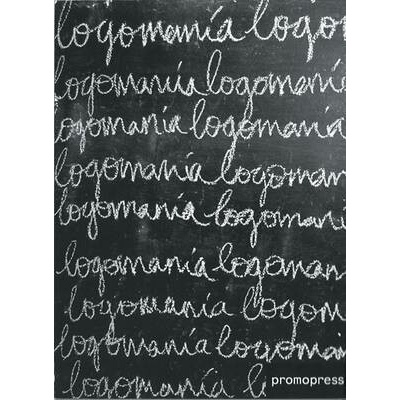 logomanía logo
logomanía logomaní
ogomanía logomanía
logomanía logoman
logomanía logomaní
logomanía logoman
logomanía logom
logomanía logoma
logomanía l
promopress